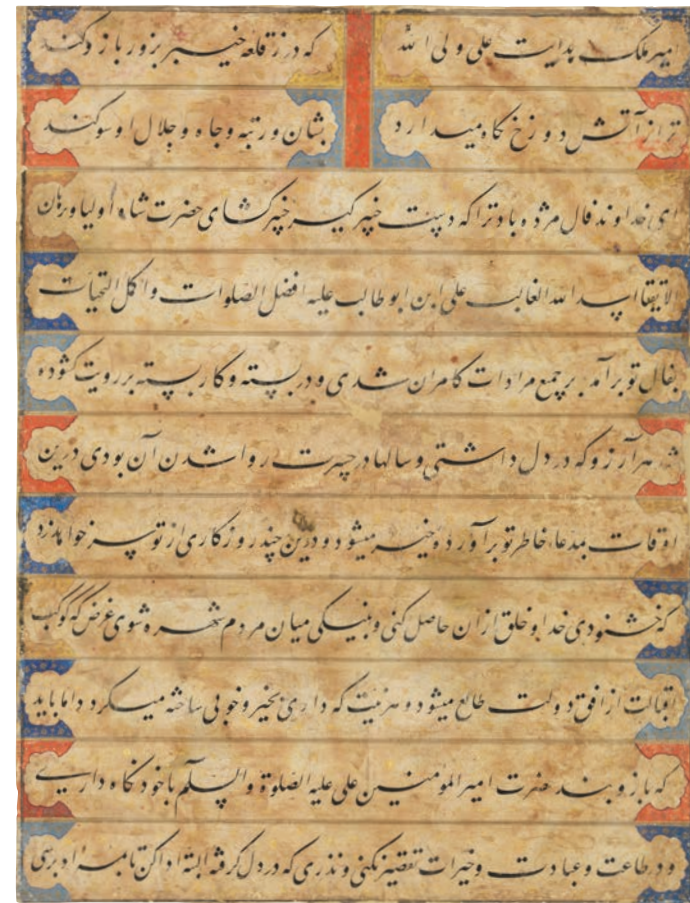 امیر ملک هدایت علی ولی الله که در ز قلعه خیبر بزور بازو کند
ترا ز آتش دوزخ نگاه میدارد بشان و رتبه و جاه و جلال او سوکند
ای خداوند فال مژده باد ترا که دست خیبر کیر خیبر کشای حضرت شاه اولیا و برهان
الاتقیا اسد الله الغالب علی ابن ابو طالب علیه افضل الصلوات و اکمل التحیات
بفال تو برآمد بر جمیع مرادات کامران شدی و در بسته و کار بسته بر رویت کشوده
شد هر آرزو که در دل داشتی و سالها در حسرت روا شدن آن بودی درین
اوقات بمدعا خاطر تو برآورده خیر میشود و درین چند روز کاری از تو سر خواهد زد
که خشنودی خدا و خلق ازان حاصل کنی و بنیکی میان مردم شهره شوی غرض که کوکب
اقبالت از افق دولت طالع میشود و هر نیت که داری بخیر و خوبی ساخته میکردد اما باید
که بازوبند حضرت امیر المومنین علی علیه الصلوة والسلم باخود نکاه داری
و در طاعت و عبادت و خیرات تقصیر نکنی و نذری که در دل کرفته البته ادا کن تا بمراد برسی